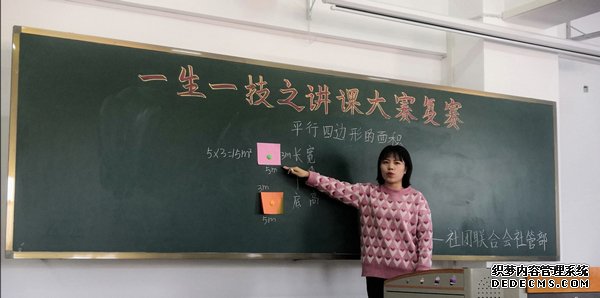 一生一技之讲课大赛复赛
平行四边形的面积
5×3=15m² 3m 长 宽
5m
3m
底 高
5m
—社团联合会社管部
织梦内容管理系统
DEDECMS.COM